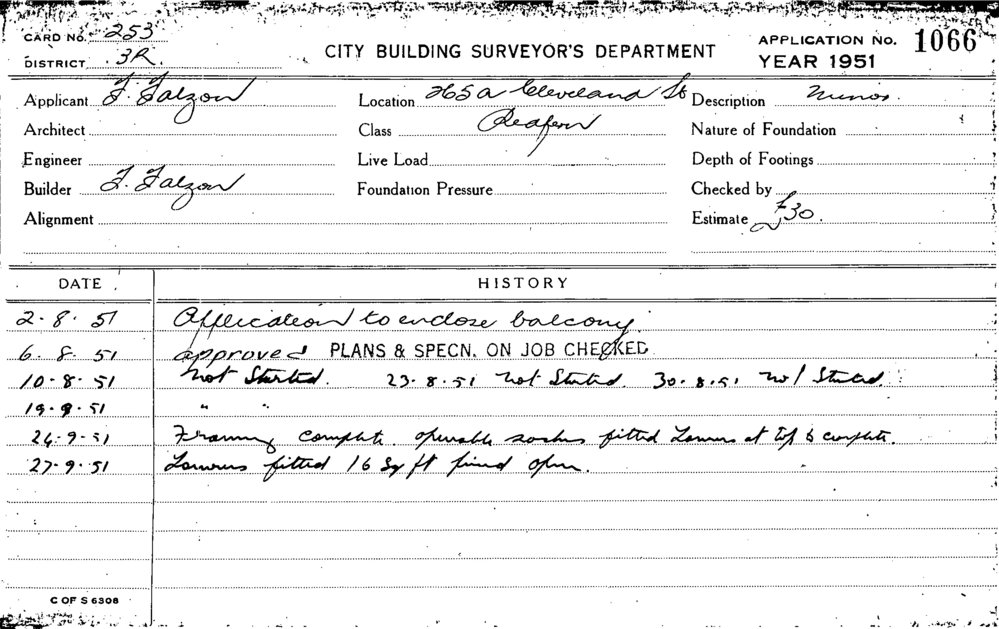 CARD NO. 253
DISTRICT 3R.
CITY BUILDING SURVEYOR'S DEPARTMENT
APPLICATION NO. 1066
YEAR 1951
Applicant F. Falzon
Location 265a Cleveland St
Description Minor.
Architect
Class Redfern
Nature of Foundation
Engineer
Live Load
Depth of Footings
Builder F. Falzon
Foundation Pressure
Checked by
Alignment
Estimate £30.
DATE HISTORY
2.8.51 Application to enclose balcony.
6.8.51 approved PLANS & SPECN. ON JOB CHECKED
10.8.51 Not Started. 23.8.51 Not Started. 30.8.51 Not Started
19.9.51 " "
24.9.51 Framing complete. openable sashes fitted Louvres at top to complete.
27.9.51 Louvres fitted 16 sq ft fixed open.
C OF S 6308